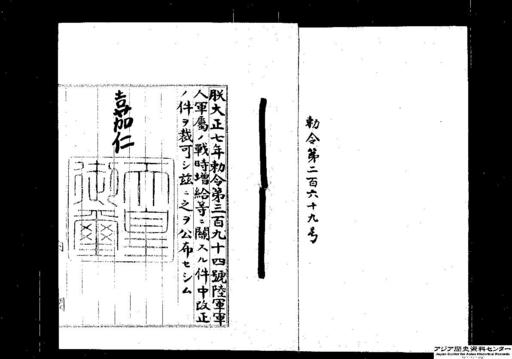 勅令第二百六十九号
朕大正七年勅令第三百九十四號陸軍軍
人軍屬ノ戰時増給等ニ關スル件中改正
ノ件ヲ裁可シ茲ニ之ヲ公布セシム
嘉仁
天皇御璽
アジア歴史資料センター
Japan Center for Asian Historical Records